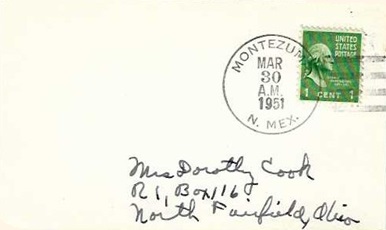 MONTEZUMA
MAR
30
A.M.
1951
N. MEX.
UNITED
STATES
POSTAGE
1 CENT 1
Mrs Dorothy Cook
R 1, Box 116
North Fairfield, Ohio